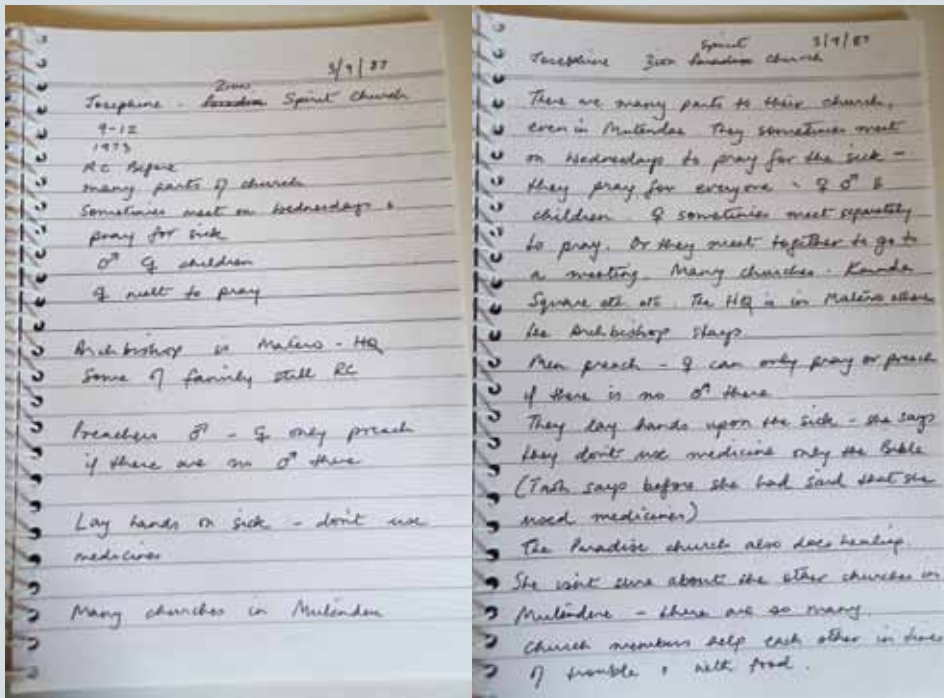 3/9/87
Zion
Josephine - Paradise Spirit Church
9-12
1973
RC Before
many parts of church
Sometimes meet on Wednesdays &
pray for sick
♂ ♀ children
♀ meet to pray
Archbishop in Matero - HQ
Some of family still RC
Preachers ♂ - ♀ only preach
if there are no ♂ there
Lay hands on sick - don't use
medicines
Many churches in Mutendere
Spirit 3/9/87
Josephine Zion Paradise Church
There are many parts to their church,
even in Mutendere They sometimes meet
on Wednesdays to pray for the sick -
they pray for everyone - ♀ ♂ &
children. ♀ sometimes meet separately
to pray. Or they meet together to go to
a meeting. Many churches - Kaunda
Square etc etc. The HQ is in Matero where
the Archbishop stays.
Men preach - ♀ can only pray or preach
if there is no ♂ there
They lay hands upon the sick - she says
they don't use medicine only the Bible
(Tash says before she had said that she
used medicines)
The Paradise church also does healing.
She isn't sure about the other churches in
Mutendere - there are so many.
Church members help each other in times
of trouble & with food.